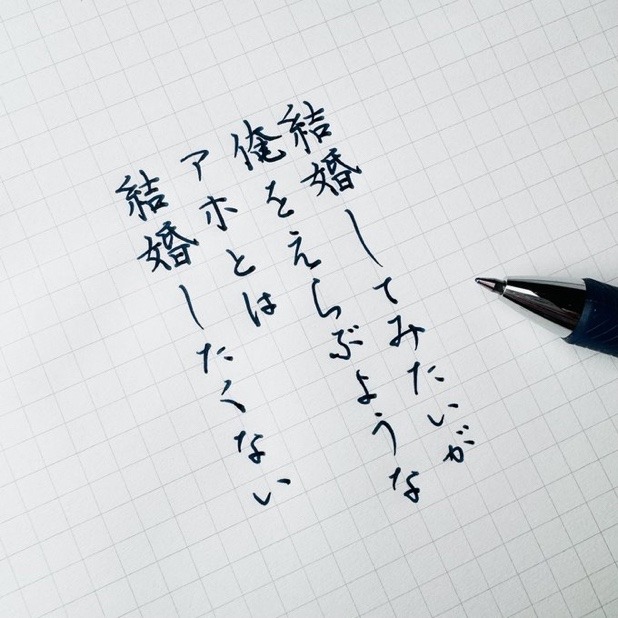 結婚してみたいが
俺をえらぶような
アホとは
結婚したくない